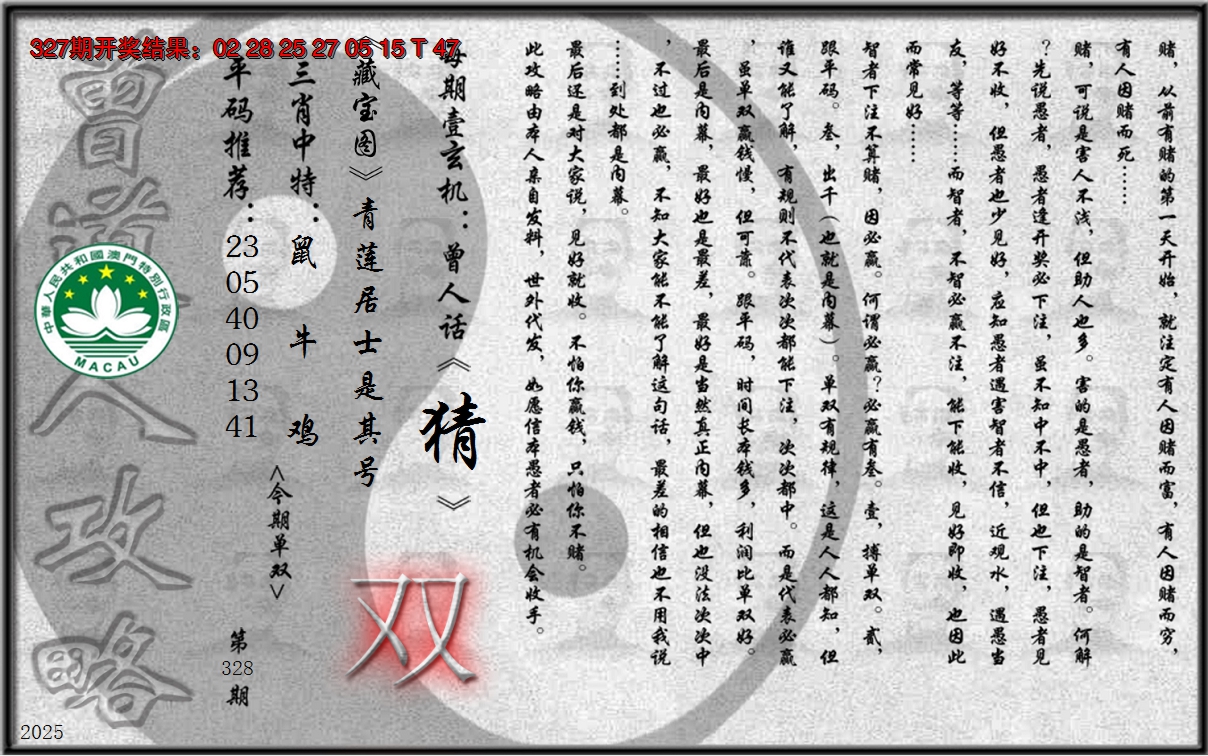 327期开奖结果：02 28 25 27 05 15 T 47
赌，从前有赌的第一天开始，就注定有人因赌而富，有人因赌而穷，
有人因赌而死……
赌，可说是害人不浅，但助人也多。害的是愚者，助的是智者。何解
？先说愚者，愚者逢开奖必下注，虽不知中不中，但也下注，愚者见
好不收，但愚者也少见好，应知愚者遇害智者不信，近观水，遇愚当
友，等等……而智者，不智必赢不注，能下能收，见好即收，也因此
而常见好……
智者下注不算赌，因必赢。何谓必赢？必赢有叁。壹，搏单双。贰，
跟平码。叁，出千（也就是内幕）。单双有规律，这是人人都知，但
谁又能了解，有规则不代表次次都能下注，次次都中。而是代表必赢
，虽单双赢钱慢，但可靠。跟平码，时间长本钱多，利润比单双好。
最后是内幕，最好也是最差，最好是当然真正内幕，但也没法次次中
，不过也必赢，不知大家能不能了解这句话，最差的相信也不用我说
……到处都是内幕。
最后还是对大家说，见好就收。不怕你赢钱，只怕你不赌。
此攻略由本人亲自发料，世外代发，如愿信本愚者必有机会收手。
每期壹玄机：曾人话《猜》
《藏宝图》青莲居士是其号
双
三肖中特：鼠 牛 鸡
<今期单双>
平码推荐：23 05 40 09 13 41
第328期
曾道人攻略
中華人民共和國澳門特別行政區
MACAU
2025